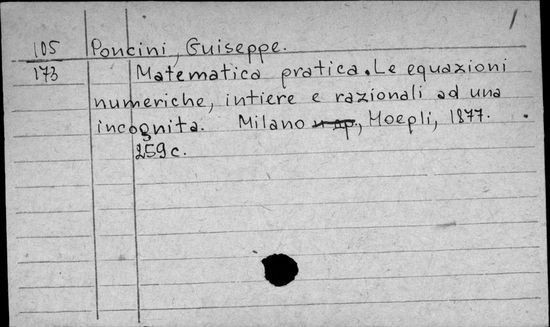 1
105 Poncini, Guiseppe.
173 Matematica pratica. Le equazioni
numeriche, intiere e razionali ad una
incognita. Milano, Hoepli, 1877.
259 c.